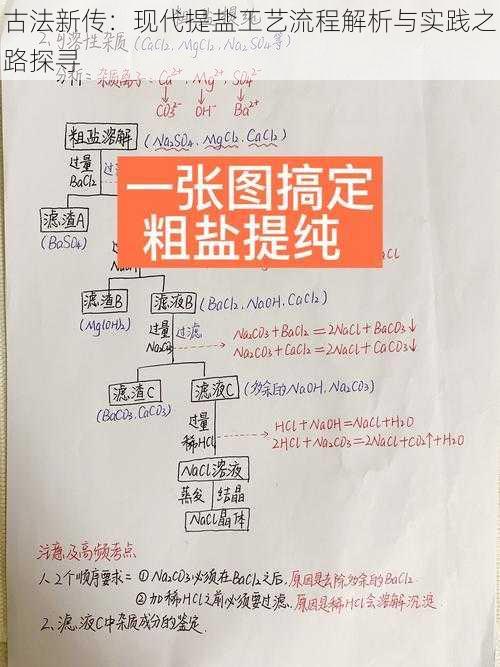 古法新传：现代提盐工艺流程解析与实践之
路探寻
2.可溶性杂质（CaCl₂、MgCl₂、Na₂SO₄等）
分析：杂质离子：Ca²⁺、Mg²⁺、SO₄²⁻
CO₃²⁻ OH⁻ Ba²⁺
粗盐溶解（Na₂SO₄、MgCl₂、CaCl₂）
过量 过滤
BaCl₂
一张图搞定
粗盐提纯
滤渣A
(BaSO₄)
滤渣B 滤液B（BaCl₂、NaOH、CaCl₂）
(Mg(OH)₂) 过量 过滤
Na₂CO₃
Na₂CO₃+BaCl₂=2NaCl+BaCO₃↓
Na₂CO₃+CaCl₂=2NaCl+CaCO₃↓
滤渣C 滤液C（多余的NaOH、Na₂CO₃）
(BaCO₃、CaCO₃)
过量
稀HCl
HCl+NaOH=NaCl+H₂O
2HCl+Na₂CO₃=2NaCl+CO₂↑+H₂O
NaCl溶液
蒸发 结晶
NaCl晶体
注意及高频考点
1、2个顺序要求=①Na₂CO₃必须在BaCl₂之后，原因是去除多余的BaCl₂
②加稀HCl之前必须要过滤。原因是稀HCl会溶解沉淀
2、滤液C中杂质成分的鉴定